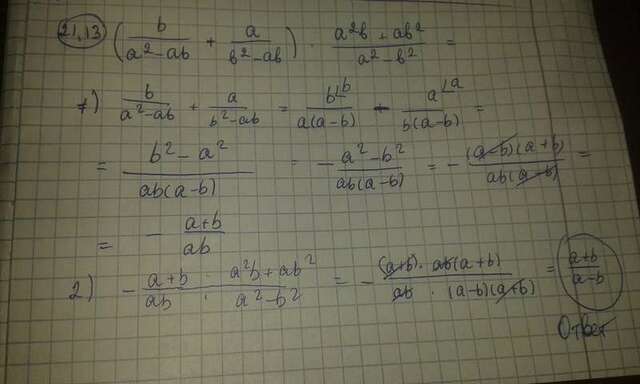 21.13 (b/(a²-ab) + a/(b²-ab)) · (a²b + ab²)/(a²-b²) =
1) b/(a²-ab) + a/(b²-ab) = b⌊b/(a(a-b)) - a⌊a/(b(a-b)) =
= (b² - a²)/(ab(a-b)) = - (a²-b²)/(ab(a-b)) = - (a-b)(a+b)/(ab(a-b)) =
= - (a+b)/(ab)
2) - (a+b)/(ab) · (a²b + ab²)/(a²-b²) = - ((a+b) · ab(a+b))/(ab · (a-b)(a+b)) = (a+b)/(a-b)
Ответ